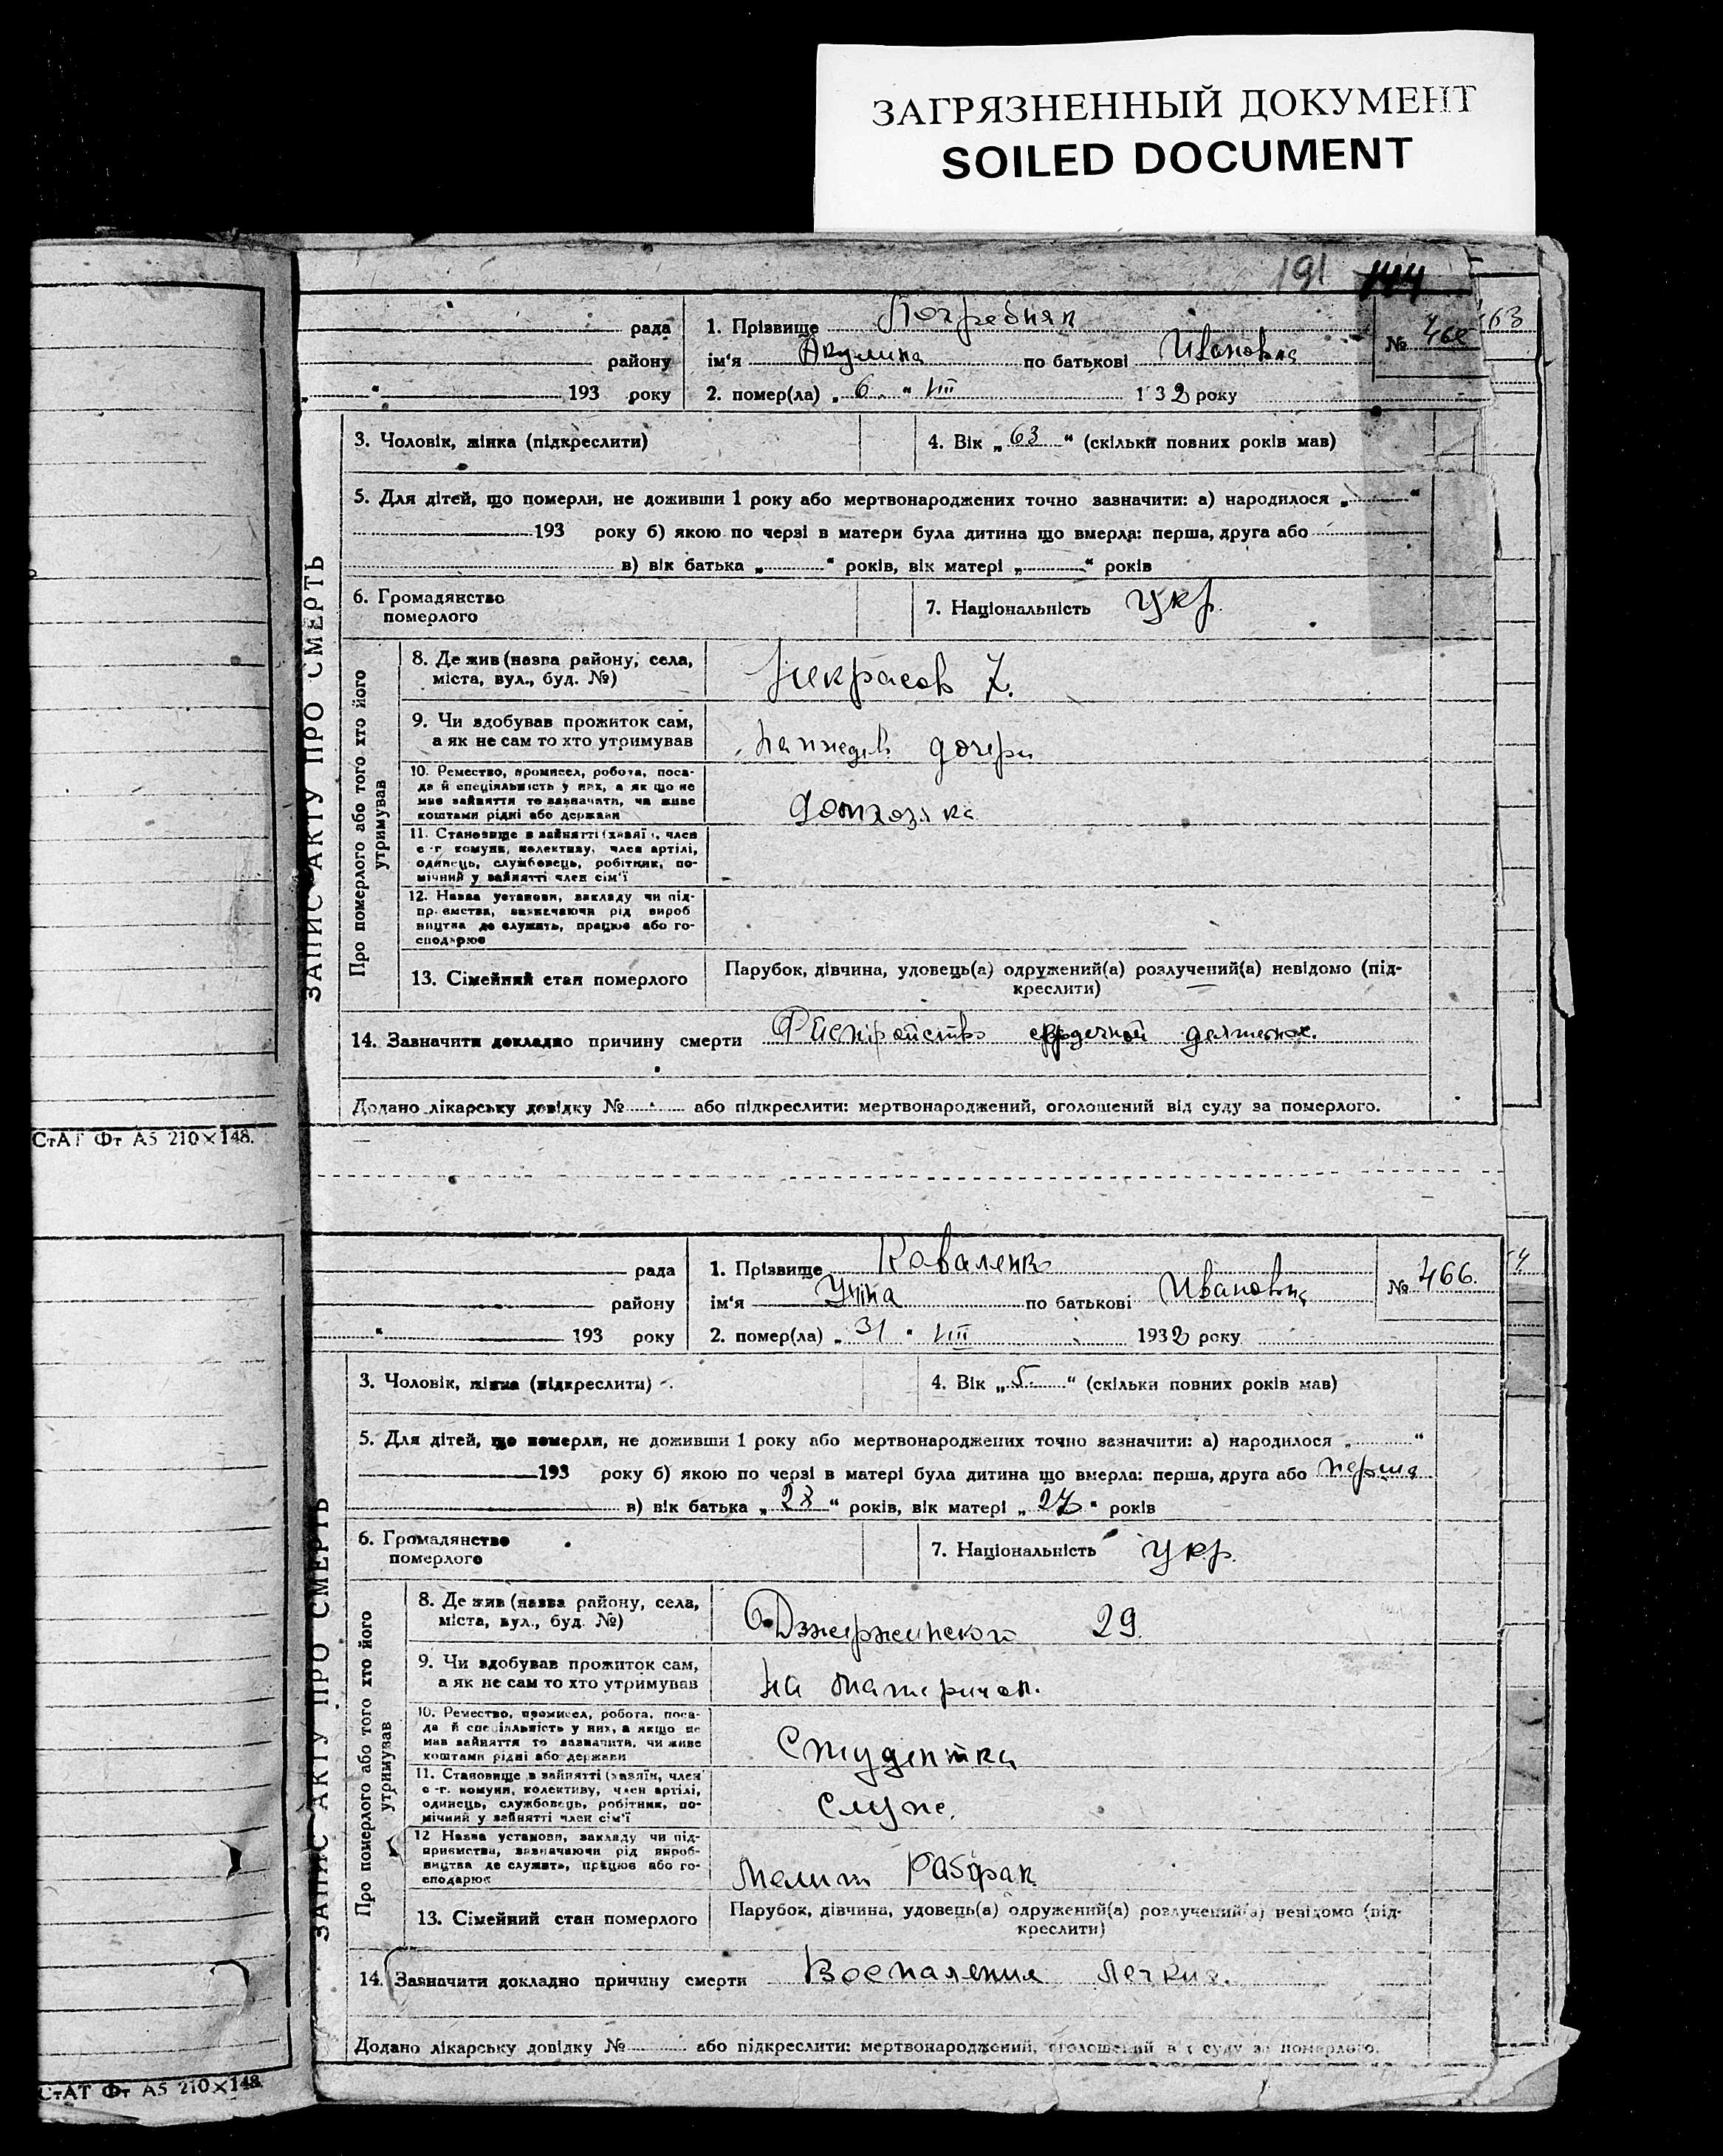 ЗАГРЯЗНЕННЫЙ ДОКУМЕНТ
SOILED DOCUMENT
191 144
рада
району
193 року
1. Прізвище Погребняк
ім'я Акулина по батькові Ивановна
2. помер(ла) „ 6 " VIII 1 32 року
№
63
ЗАПИС АКТУ ПРО СМЕРТЬ
3. Чоловік, жінка (підкреслити)
4. Вік „ 63 " (скільки повних років мав)
5. Для дітей, що померли, не доживши 1 року або мертвонароджених точно зазначити: а) народилося „ "
193 року б) якою по черзі в матери була дитина що вмерла: перша, друга або
в) вік батька „ " років, вік матері „ " років
6. Громадянство
померлого
7. Національність укр.
Про померлого або того хто його
утримував
8. Де жив (назва району, села,
міста, вул., буд. №)
Некрасов 7.
9. Чи здобував прожиток сам,
а як не сам то хто утримував
дочери
10. Ремество, промисел, робота, поса-
да й спеціяльність у них, а як що не
мав зайняття то зазначити, чи живе
коштами рідні або держави
домхозяка
11. Становище в зайнятті (хазяї , член
с -г комуни, колективу, член артілі,
одинець, службовець, робітник, по-
мічний у зайнятті член сім'ї
12. Назва установи, закладу чи під-
пр ємства, зазначаючи рід вироб
ництва де служить, працює або го-
сподарює
13. Сімейний стан померлого
Парубок, дівчина, удовець(а) одружений(а) розлучений(а) невідомо (під-
креслити)
14. Зазначити докладно причину смерти сердечной
Додано лікарську довідку № або підкреслити: мертвонароджений, оголошений від суду за померлого.
СтАТ Фт А5 210×148.
рада
району
193 року
1. Прізвище Коваленко
ім'я по батькові Ивановна
2. помер(ла) „ 31 " VIII 1932 року
№ 466.
ЗАПИС АКТУ ПРО СМЕРТЬ
3. Чоловік, жінка (підкреслити)
4. Вік „ 5 " (скільки повних років мав)
5. Для дітей, що померли, не доживши 1 року або мертвонароджених точно зазначити: а) народилося „ "
193 року б) якою по черзі в матері була дитина що вмерла: перша, друга або перша
в) вік батька „ 28 " років, вік матері „ 27 " років
6. Громадянство
померлого
7. Національність укр.
Про померлого або того хто його
утримував
8. Де жив (назва району, села,
міста, вул., буд. №)
Дзержинского 29.
9. Чи здобував прожиток сам,
а як не сам то хто утримував
на
10. Ремество, промисел, робота, поса-
да й спеціяльність у них, а якщо не
мав зайняття то зазначити, чи живе
коштами рідні або держави
Студентка
11. Становище в зайнятті (хазяїн, член
с -г. комуни, колективу, член артілі,
одинець, службовець, робітник, по-
мічний у зайнятті член сім'ї
служ.
12 Назва установи, закладу чи під-
приємства, зазначаючи рід вироб-
ництва де служить, працює або го-
сподарює
Мелит Рабфак
13. Сімейний стан померлого
Парубок, дівчина, удовець(а) одружений(а) розлучений(а) невідомо (під-
креслити)
14. Зазначити докладно причину смерти Воспаления легких.
Додано лікарську довідку № або підкреслити: мертвонароджений, оголошений від суду за померлого.
СтАТ Фт А5 210×148.